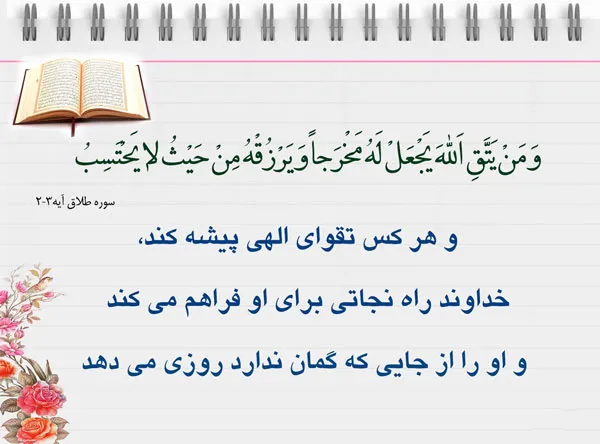 وَمَنْ يَتَّقِ اللَّهَ يَجْعَلْ لَهُ مَخْرَجاً وَيَرْزُقْهُ مِنْ حَيْثُ لا يَحْتَسِبُ
سوره طلاق آیه۳-۲
و هر کس تقوای الهی پیشه کند،
خداوند راه نجاتی برای او فراهم می کند
و او را از جایی که گمان ندارد روزی می دهد